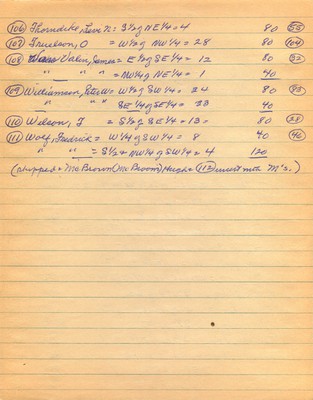 (106) Thorndike, Levi N = S½ of NE¼ = 4 80 (55)
(107) Truelson, O = W½ of NW¼ = 28 80 (104)
(108) Valin, James = E½ of SE¼ = 12 80 (52)
" " " = NW¼ of NE¼ = 1 40
(109) Williamson, Peter W = W½ of SW¼ = 34 80 (83)
" " " " SE¼ of SE¼ = 33 40
(110) Wilson, J = S½ of SE¼ = 13 = 80 (28)
(111) Wolf, Fredrick = W¼ of SW¼ = 8 40 (46)
" " = S½ + NW¼ of SW¼ = 4 120
(skipped = McBrown (McBroom) Hugh = (112) insert with M's.)